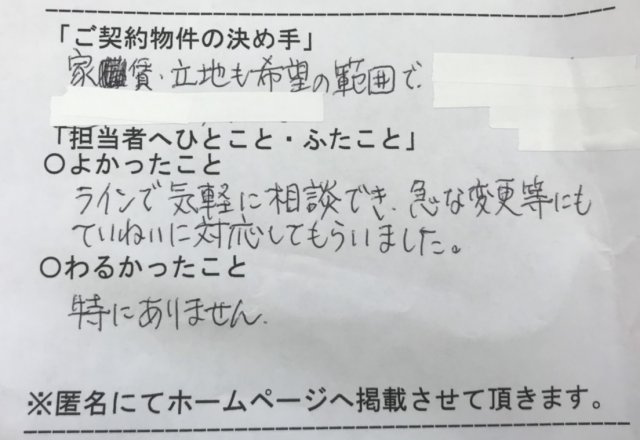 「ご契約物件の決め手」
家賃・立地も希望の範囲で、
「担当者へひとこと・ふたこと」
○よかったこと
ラインで気軽に相談でき、急な変更等にも
ていねいに対応してもらいました。
○わるかったこと
特にありません。
※匿名にてホームページへ掲載させて頂きます。